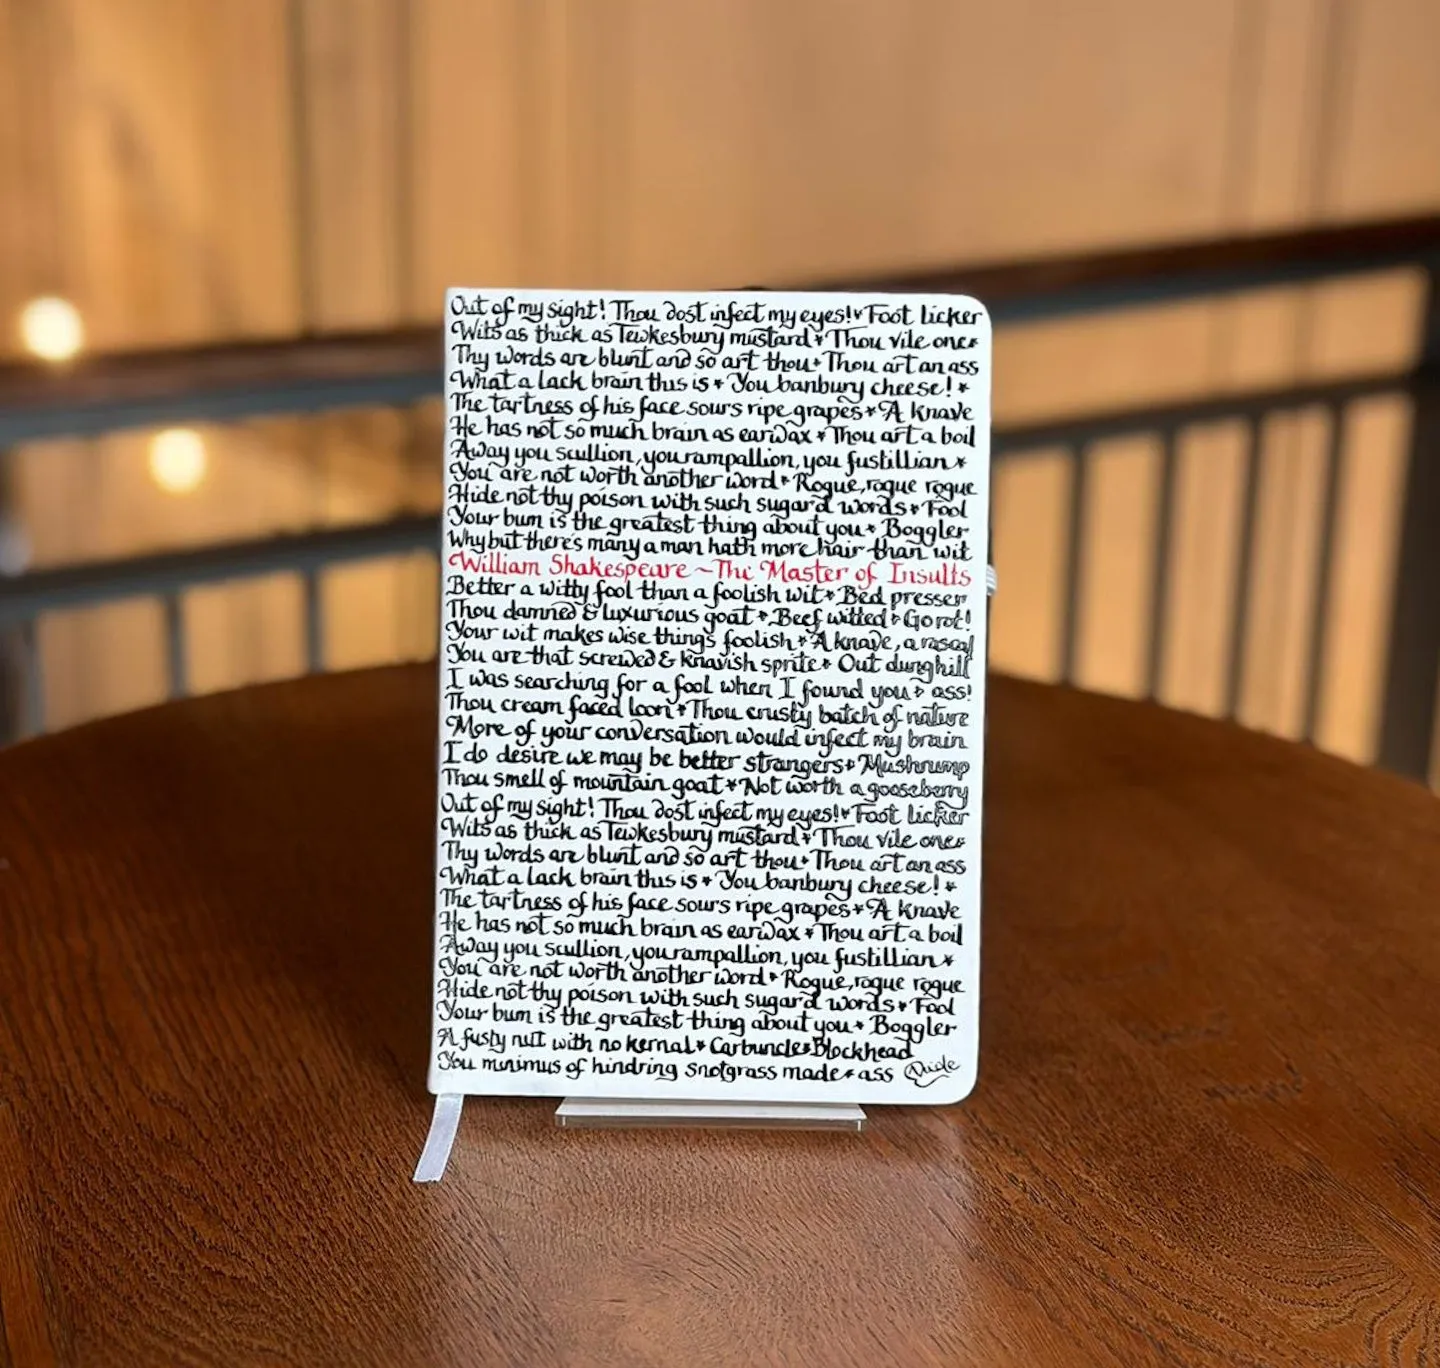 Out of my sight! Thou dost infect my eyes! * Foot licker
Wits as thick as Tewkesbury mustard * Thou vile one *
Thy words are blunt and so art thou * Thou art an ass
What a lack brain this is * You banbury cheese! *
The tartness of his face sours ripe grapes * A knave
He has not so much brain as earwax * Thou art a boil
Away you scullion, you rampallion, you fustillian *
You are not worth another word * Rogue, rogue rogue
Hide not thy poison with such sugar'd words * Fool
Your bum is the greatest thing about you * Boggler
Why but there's many a man hath more hair than wit
William Shakespeare ~ The Master of Insults
Better a witty fool than a foolish wit * Bed presser
Thou damned & luxurious goat * Beef witted * Go rot!
Your wit makes wise things foolish * A knave, a rascal
You are that screwed & knavish sprite * Out dunghill
I was searching for a fool when I found you * ass!
Thou cream faced loon * Thou crusty batch of nature
More of your conversation would infect my brain
I do desire we may be better strangers * Mushrump
Thou smell of mountain goat * Not worth a gooseberry
Out of my sight! Thou dost infect my eyes! * Foot licker
Wits as thick as Tewkesbury mustard * Thou vile one *
Thy words are blunt and so art thou * Thou art an ass
What a lack brain this is * You banbury cheese! *
The tartness of his face sours ripe grapes * A knave
He has not so much brain as earwax * Thou art a boil
Away you scullion, you rampallion, you fustillian *
You are not worth another word * Rogue, rogue rogue
Hide not thy poison with such sugar'd words * Fool
Your bum is the greatest thing about you * Boggler
A fusty nut with no kernal * Carbuncle * Blockhead
You minimus of hindring snotgrass made * ass